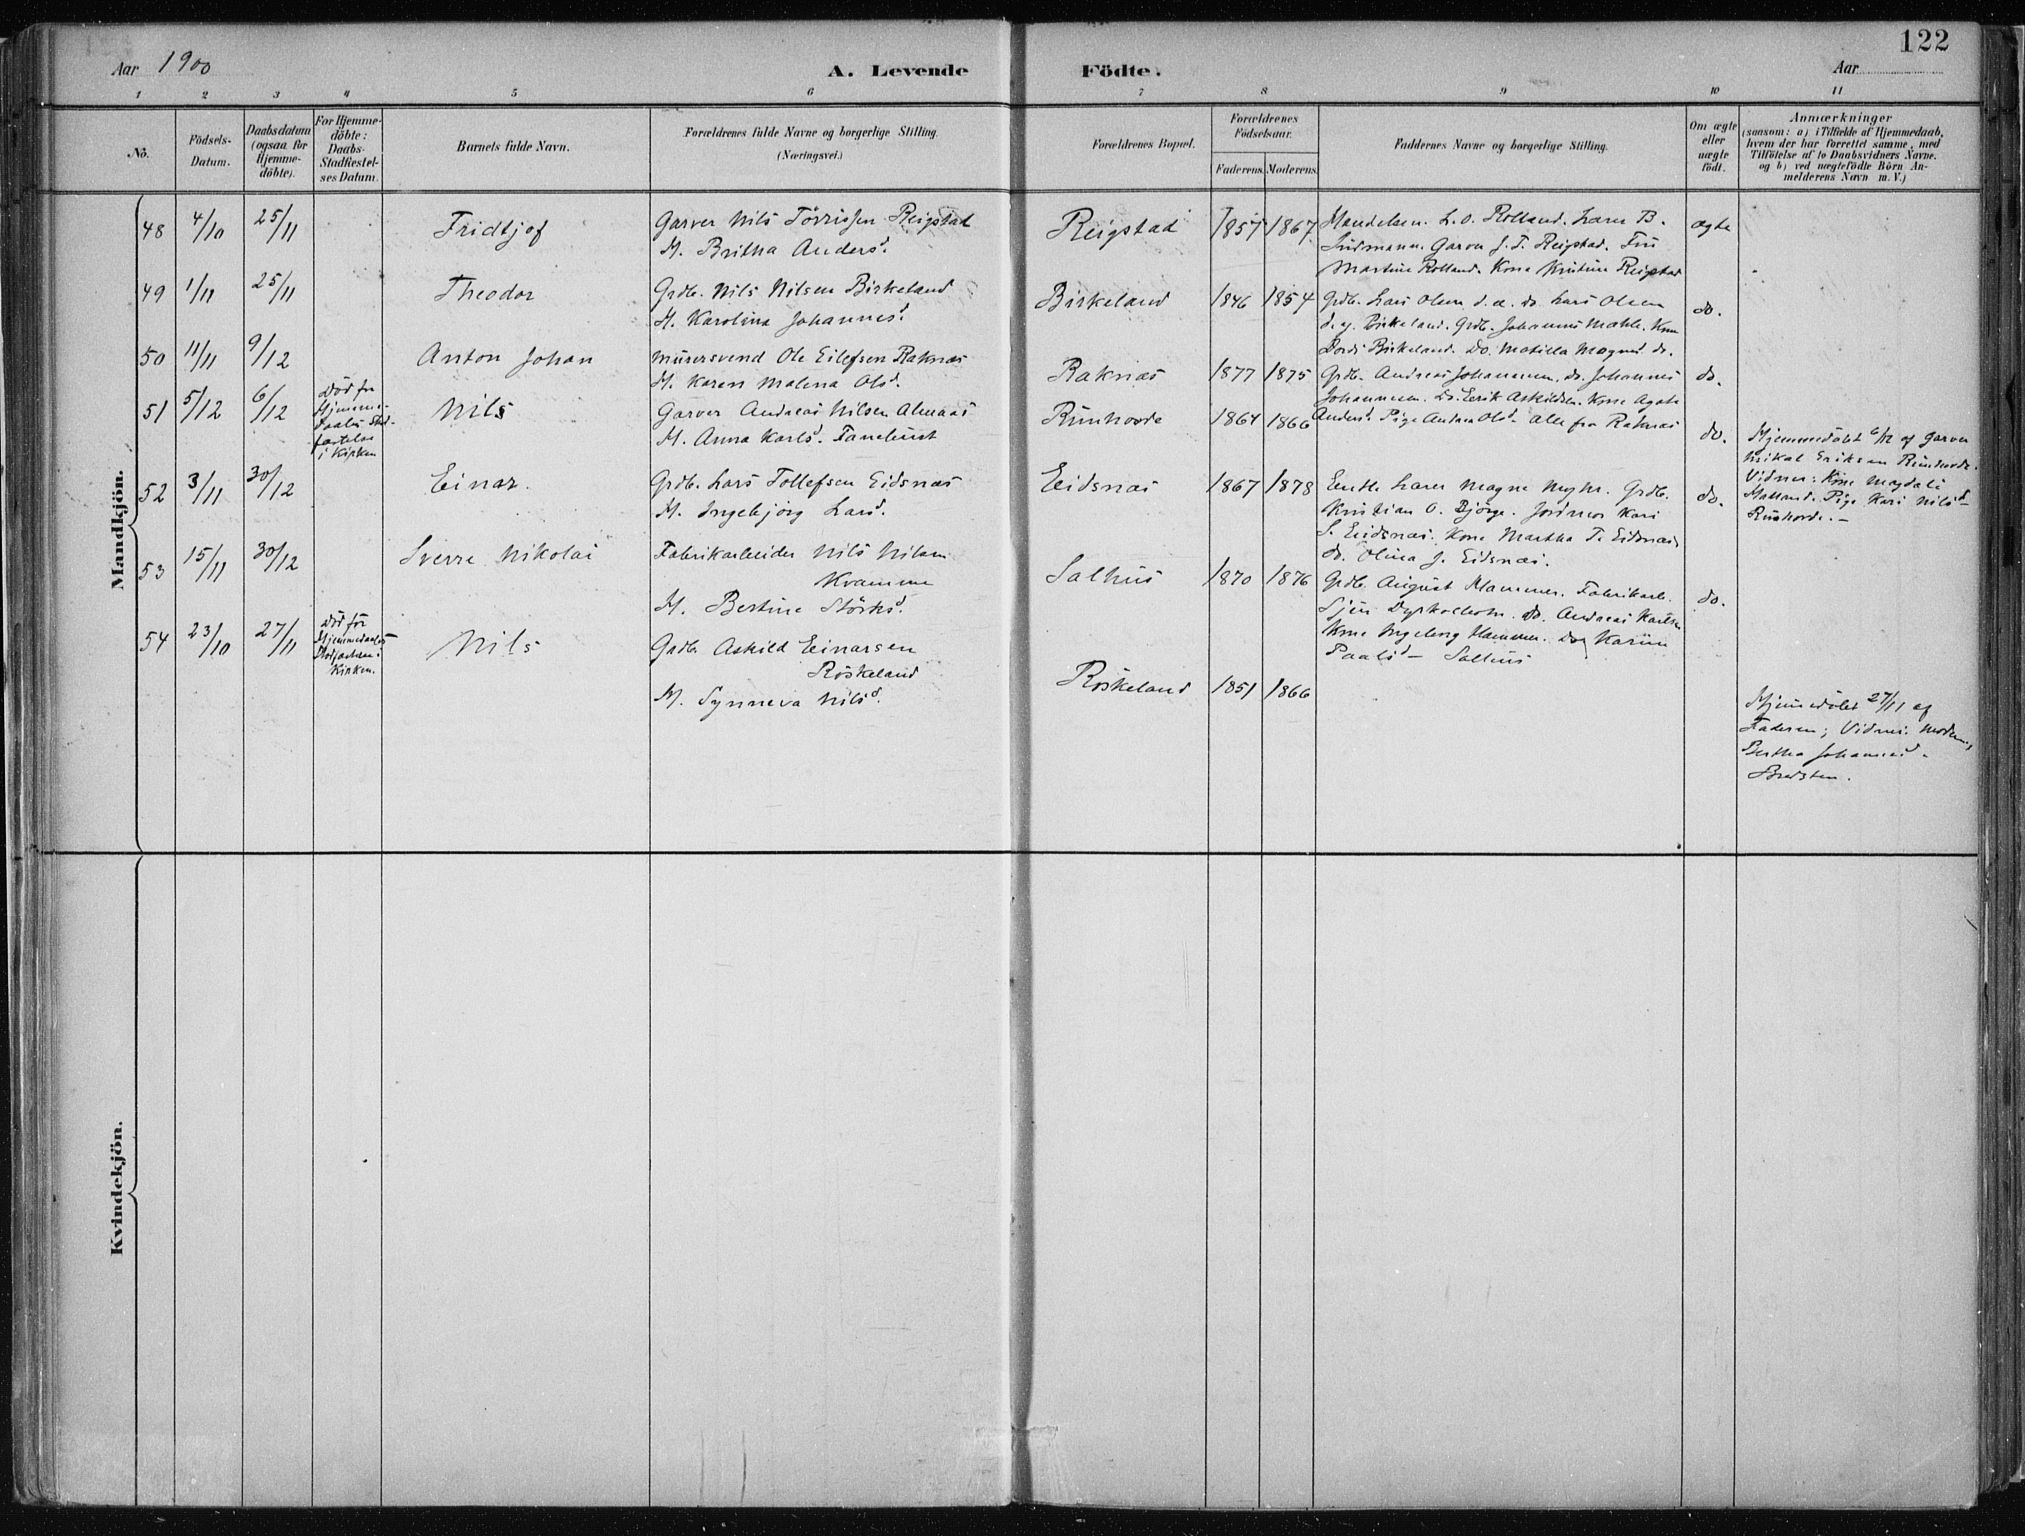 122
Aar 1900
A. Levende Födte.
Aar
1 2 3 4 5 6 7 8 9 10 11
No.
Födsels-
Datum.
Daabsdatum
(ogsaa for
Hjemme-
döbte).
For Hjemme-
döbte:
Daabs-
Stadfæstel-
ses Datum.
Barnets fulde Navn.
Forældrenes fulde Navne og borgerlige Stilling.
(Næringsvei.)
Forældrenes Bopæl.
Forældrenes
Födselsaar.
Faderens. Moderens.
Faddernes Navne og borgerlige Stilling.
Om ægte
eller
uægte
født.
Anmærkninger
(saasom: a) i Tilfælde af Hjemmedaab,
hvem der har forrettet samme, med
Tilföielse af to Daabsvidners Navne.
og b) ved uægtefödte Börn An-
melderens Navn m. V.)
Mandkjön.
48 4/10 25/11
Fridtjof
Garver Nils Törrissen Reigstad
H. Britha Andersd.
Reigstad
1857 1867
Handelsm. L. O. Rolland. Lærer B.
Garver J. T. Reigstad. Fru
Martine Rolland. Kone Kristine Reigstad
ægte
49 1/11 25/11
Theodor
Grdb. Nils Nilsen Birkeland
H. Karolina Johannesd.
Birkeland
1846 1854
Grdb. Lars Olsen d. æ. do. Lars Olsen
d. y. Birkeland. Grdb. Johannes Mæhle. Kone
Dordi Birkeland. Do. Matilla Magnesd. do.
do.
50 11/11 9/12
Anton Johan
Murersvend Ole Eilefsen Raknæs
H. Karen Malena Olsd.
Raknæs
1877 1875
Grdb. Andreas Johannesen, do. Johannes
Johannesen. Do. Eerik Askildsen. Kone Agate
Andersd. Pige Andrea Olsd. alle fra Raknæs
do.
51 5/12 6/12
Död før
Hjemme-
daabs Stad-
fæstelse
i Kirken
Nils
Garver Andreas Nilsen Almaas
H. Anna Karlsd. Tanelüst
Rimhovde
1864 1866
do.
Hjemmedöbt 6/12 af Garver
Mikal Eriksen Rimhovde.
Vidner: Kone Magdali
Hatland. Pige Kari Nilsd
Rimhovde.-
52 3/11 30/12
Einar.
Grdb. Lars Tollefsen Eidsnæs
H. Ingebjörg Larsd.
Eidsnæs
1867 1878
Lærer Magne Myhr. Grdb.
Kristian O. Bjørge. Jordmor Kari
S. Eidsnæs. Kone Martha T. Eidsnæs
do. Olina J. Eidsnæs.
do.
53 15/11 30/12
Sverre Nikolai
Fabrikarbeider Nils Nilsen
Kvamme
H. Bertine Störksd.
Salhus
1870 1876
Grdb. August Hammer. Fabrikarb.
Sjur Dyrkolbotn. Do. Andreas Karlsen
Kone Ingeborg Hammer. Do. Karün
Paalsd - Salhus
do.
54 23/10 27/11
Död for
Hjemmedaabs
Stadfæstelse i
Kirken.
Nils
Grdb. Askild Einarsen
Röskeland
H. Synneva Nilsd.
Röskeland
1851 1866
Hjemmedöbt 27/11 af
Faderen; Vidner: Moderen,
Bertha Johannesd.
Kvindekjön.